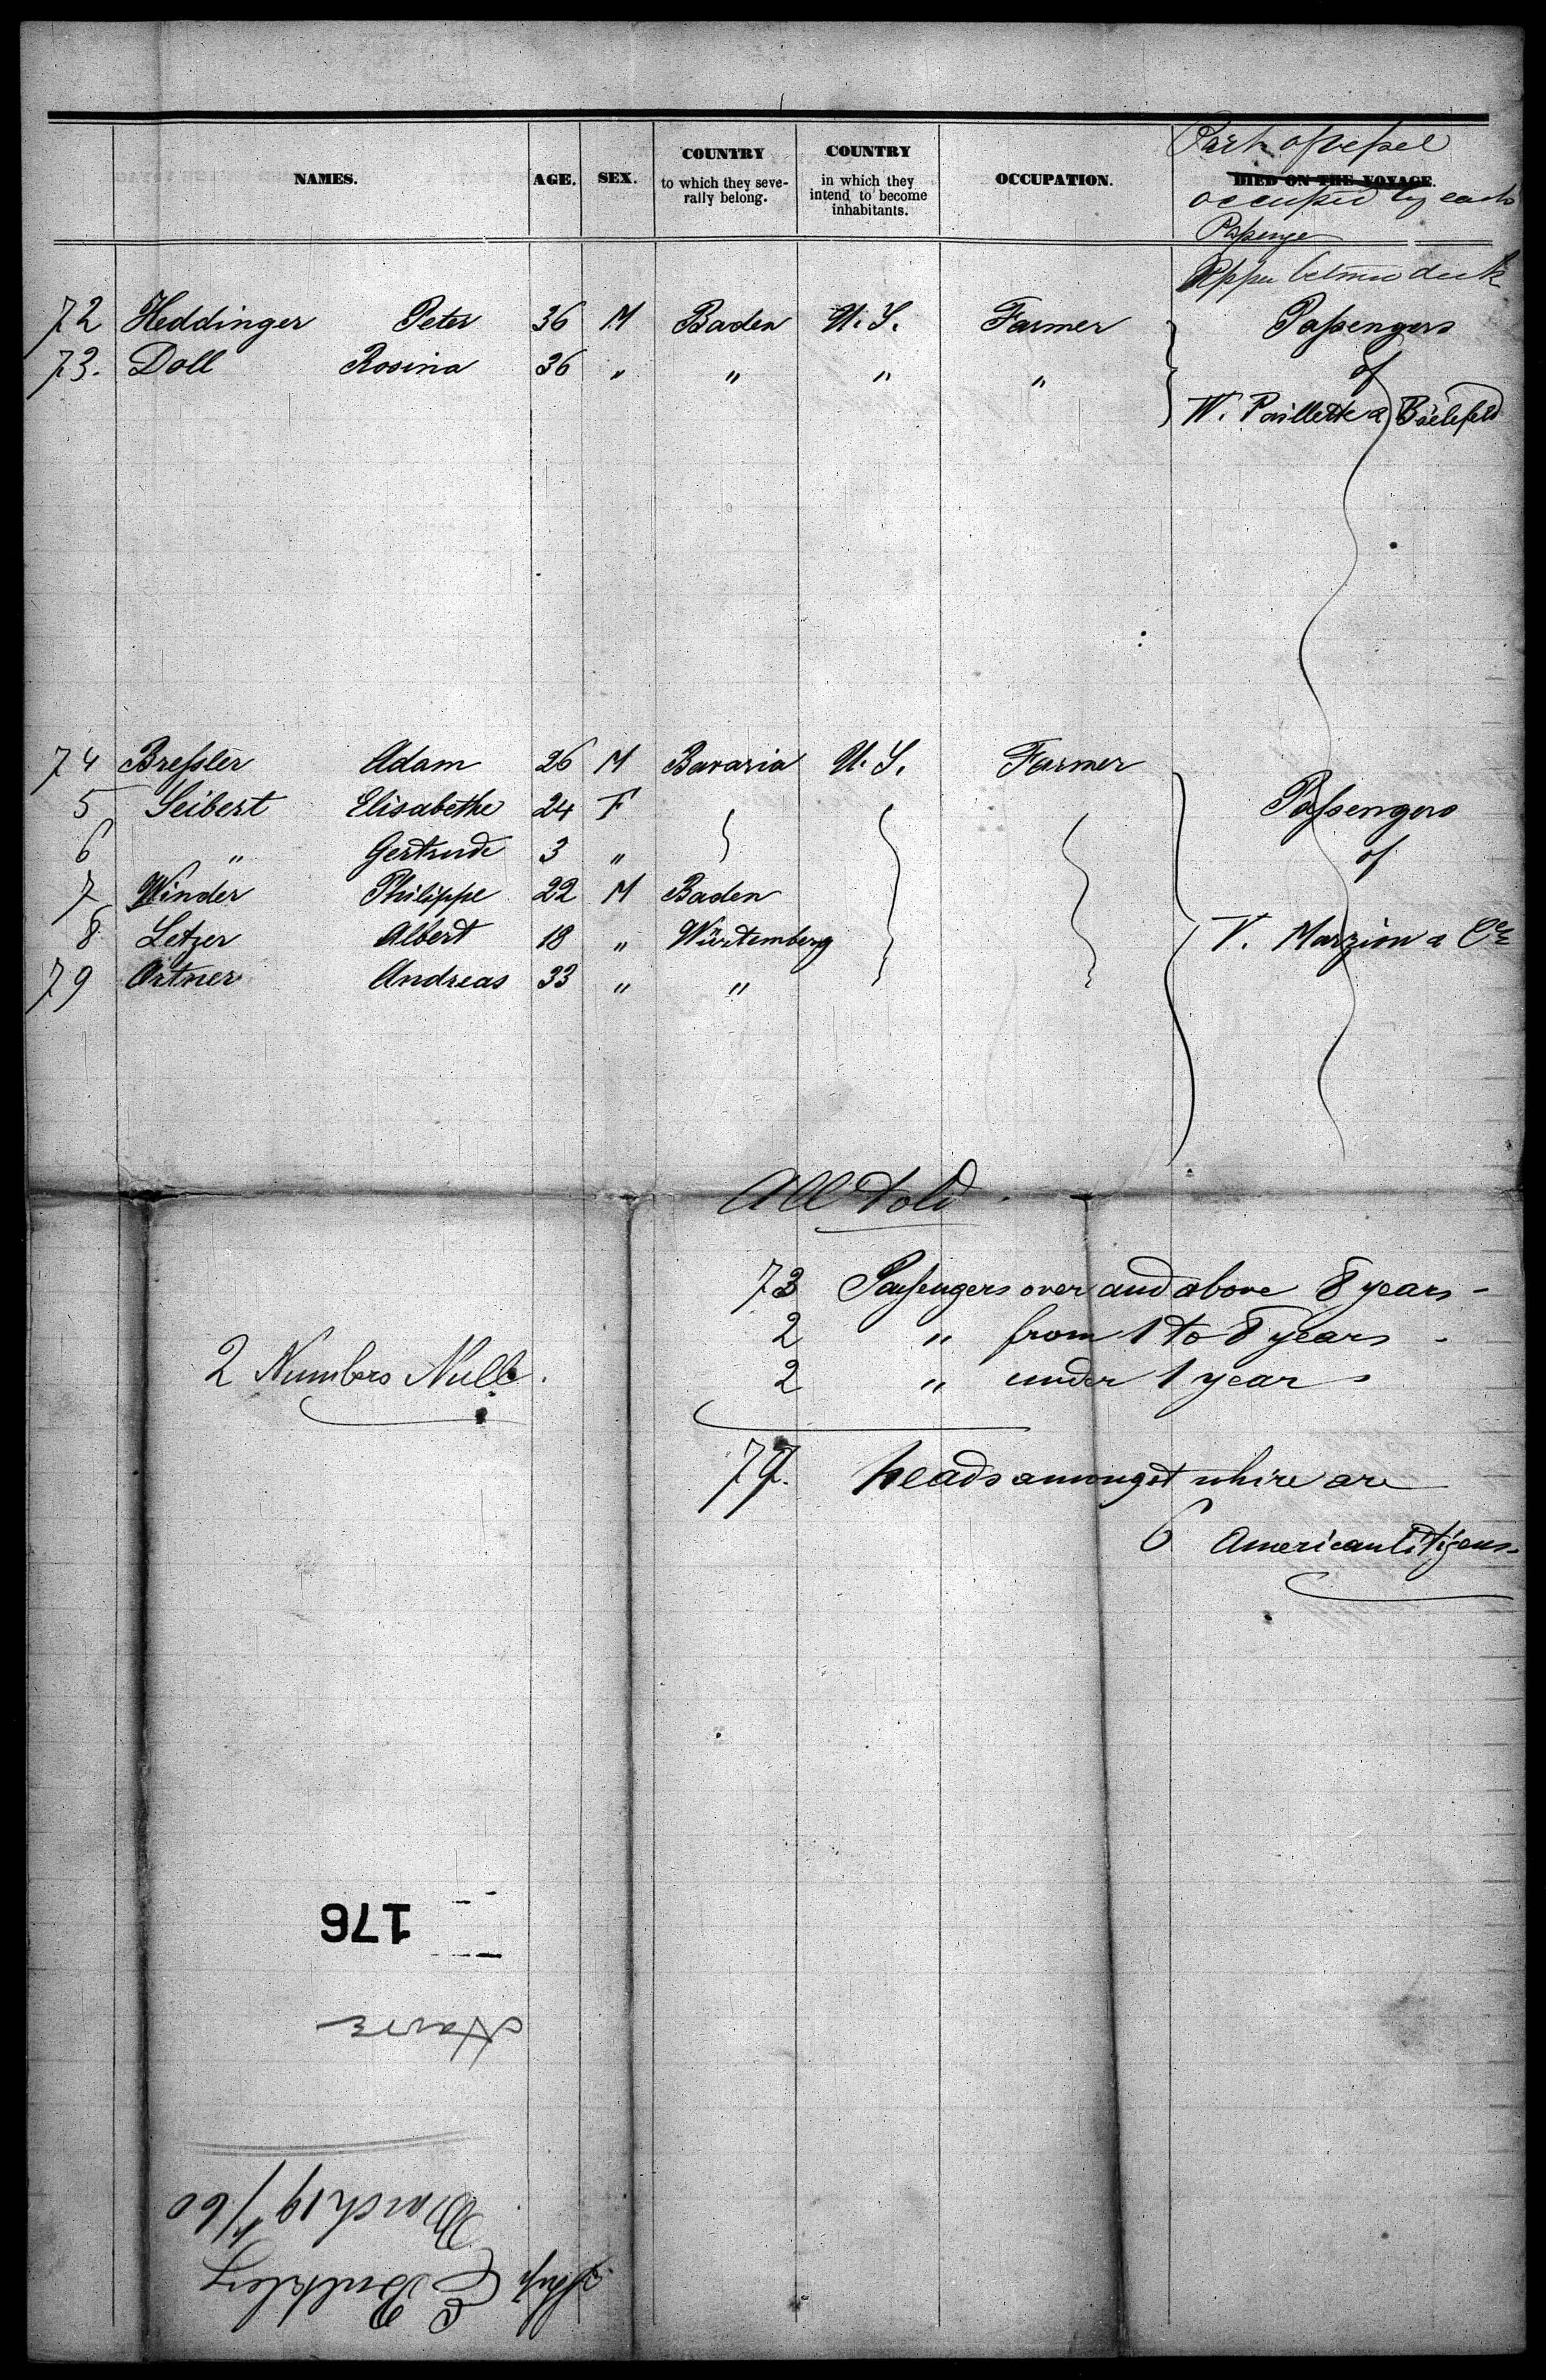 NAMES. AGE. SEX. COUNTRY to which they seve-rally belong. COUNTRY in which they intend to become inhabitants. OCCUPATION. DIED ON THE VOYAGE.
Part of vessel
occupied by each
Passenger
Upper between deck
72 Heddinger Peter 36 M Baden U.S. Farmer Passengers
73. Doll Rosina 36 " " " " of
W. Poillette a Bielefeld
74 Bressler Adam 26 M Bavaria U.S. Farmer
5 Seibert Elisabethe 24 F Passengers
6 " Gertrude 3 " of
7 Winder Philippe 22 M Baden
8 Letzer Albert 18 " Würtemberg V. Marzion a Ce
79 Ortner Andreas 33 " "
All told
73 Passengers over and above 8 years -
2 " from 1 to 8 years -
2 Numbers Null.
2 " under 1 year -
77. heads amongst whire are
6 American Citizens -
176
Havre
March 19/60
Ship E Bulkley